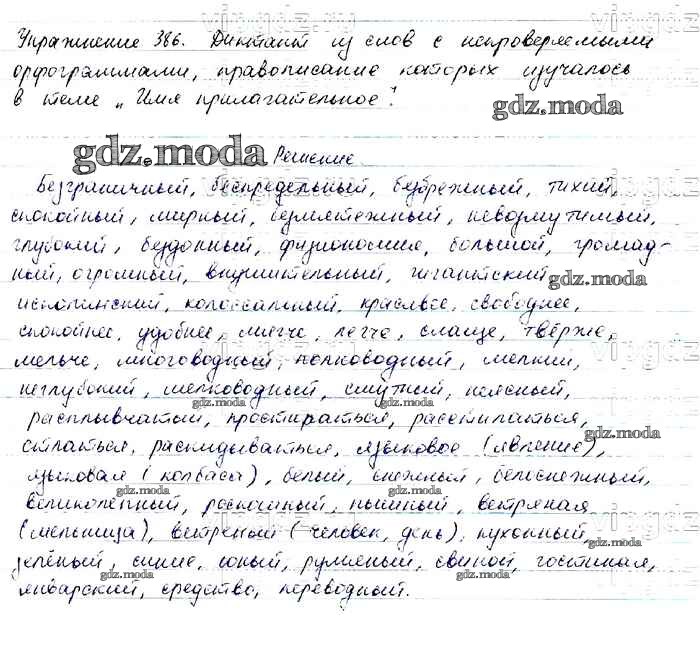 Упражнение 386. Диктант из слов с непроверяемыми
орфограммами, правописание которых изучалось
в теме „Имя прилагательное".
gdz.moda
gdz.moda Решение
Безграничный, беспредельный, безбрежный, тихий,
спокойный, мирный, безмятежный, невозмутимый,
глубокий, бездонный, физиономия, большой, громад-
ный, огромный, внушительный, гигантский
gdz.moda
исполинский, колоссальный, красивее, свободнее,
спокойнее, удобнее, мягче, легче, слаще, твёрже,
мельче, многоводный, полноводный, мелкий,
неглубокий, мелководный, смутный, неясный,
gdz.moda gdz.moda
расплывчатый, простираться, расстилаться,
стлаться, раскидываться, языковое (явление),
gdz.moda
языковая (колбаса), белый, снежный, белоснежный,
gdz.moda gdz.moda
великолепный, роскошный, пышный, ветряная
(мельница), ветреный (человек, день), кухонный,
gdz.moda
зелёный, синие, юный, румяный, свиной, гостиная,
gdz.moda gdz.moda
январский, средство, переводный.